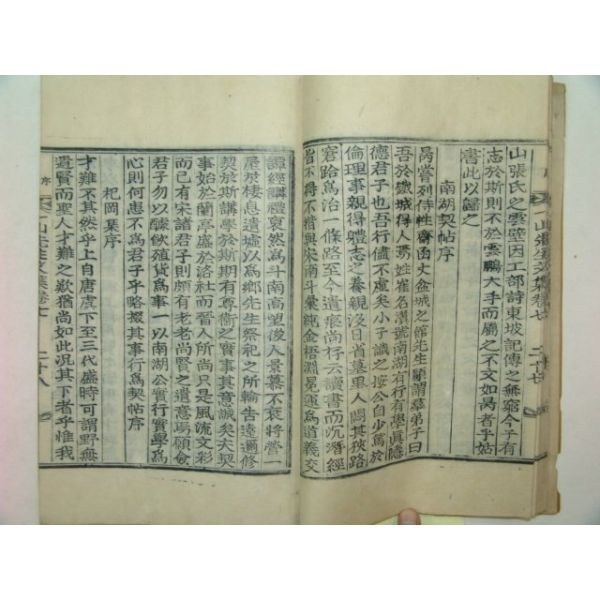 山張氏之雲壁因工部詩東坡記傳之無窮今子有
志於斯則不於雲鵬大手而屬之不文如昺者乎姑
書此以歸之
南湖契帖序
昺嘗列侍性齋函丈盆城之館先生顧謂羣弟子曰
吾於鐵城得人焉姓崔名瀷號南湖有行有學眞隱
德君子也吾行信不虛矣小子識之按公自少篤於
倫理事親得體志之養親沒日省墓里人闢其狹路
容路爲治一條路至今遺痕尚存云讀書而沉潛經
旨不得不措與宋南斗彙純金梧淵昜運爲道義交
譚經講禮裒然爲斗南高望後人景慕不衰將營一
屋於棲息遺墟以爲鄕先生祭祀之所輸告遠邇修
契於斯講學於斯期有尊衛之實事其意誠矣夫契
事始於蘭亭盛於洛社而晉人所尚只是風流文彩
而已有宋諸君子則頗有老老尚賢之遺意焉願僉
君子勿以醵飮殖貨爲事一以南湖公實行實學爲
心則何患不爲君子乎略掇其事行爲契帖序
杞岡集序
才難不其然乎上自唐虞下至三代盛時可謂野無
遺賢而聖人才難之歎猶尚如此況其下者乎惟我
序
一山先生文集卷七
二十八